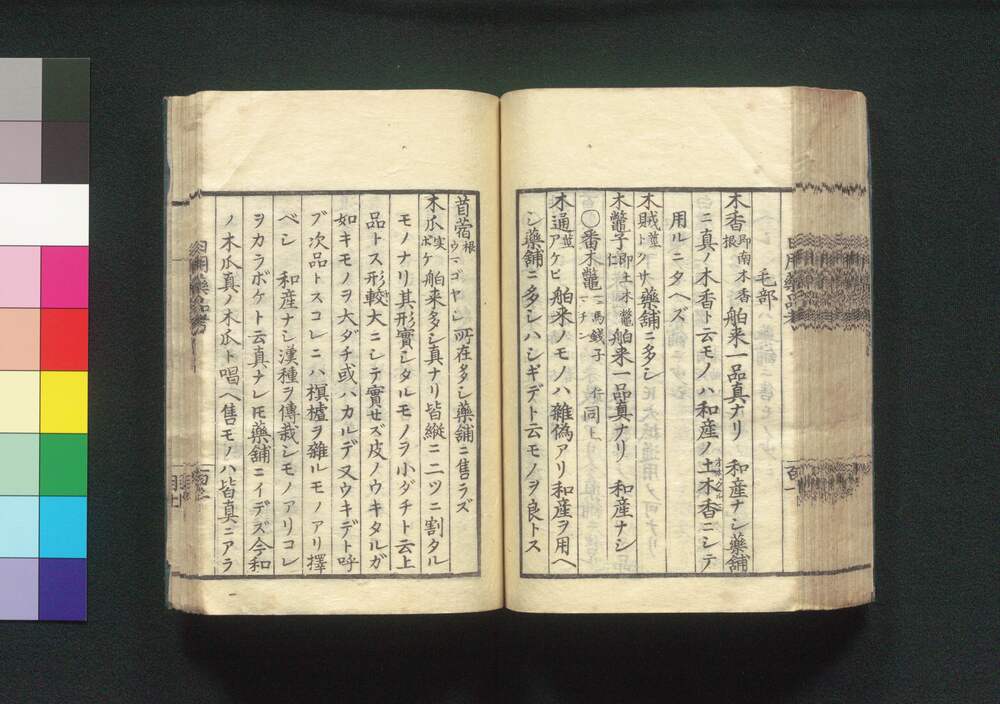 日用藥品考
百一
毛部
木香 根 即南木香 舶来一品真ナリ 和産ナシ藥舗
ニ真ノ木香ト云モノハ和産ノ土木香ニシテ
用ルニタヘズ
木賊 莖 トクサ 藥舗ニ多シ
木鼈子 仁 即土木鼈 舶来一品真ナリ 和産ナシ
〇番木鼈 一馬銭子 マチン 仝同上
木通 莖 アケビ 舶来ノモノハ雜偽アリ和産ヲ用ヘ
シ藥舗ニ多シハシギデト云モノヲ良トス
苜蓿 根 ウマゴヤシ 所在多シ藥舗ニ售ラズ
木爪 実 ボケ 舶来多シ真ナリ皆縦ニ二ツニ割タル
モノナリ其形實シタルモノヲ小ダチト云上
品トス形較大ニシテ實セズ皮ノウキタルガ
如キモノヲ大ダチ或ハカルデ又ウキデト呼
ブ次品トスコレニハ榠樝ヲ雜ルモノアリ擇
ベシ 和産ナシ漢種ヲ傳栽シモノアリコレ
ヲカラボケト云真ナレ𪜈藥舗ニイデズ今和
ノ木爪真ノ木爪ト唱ヘ售モノハ皆真ニアラ
日用藥品考